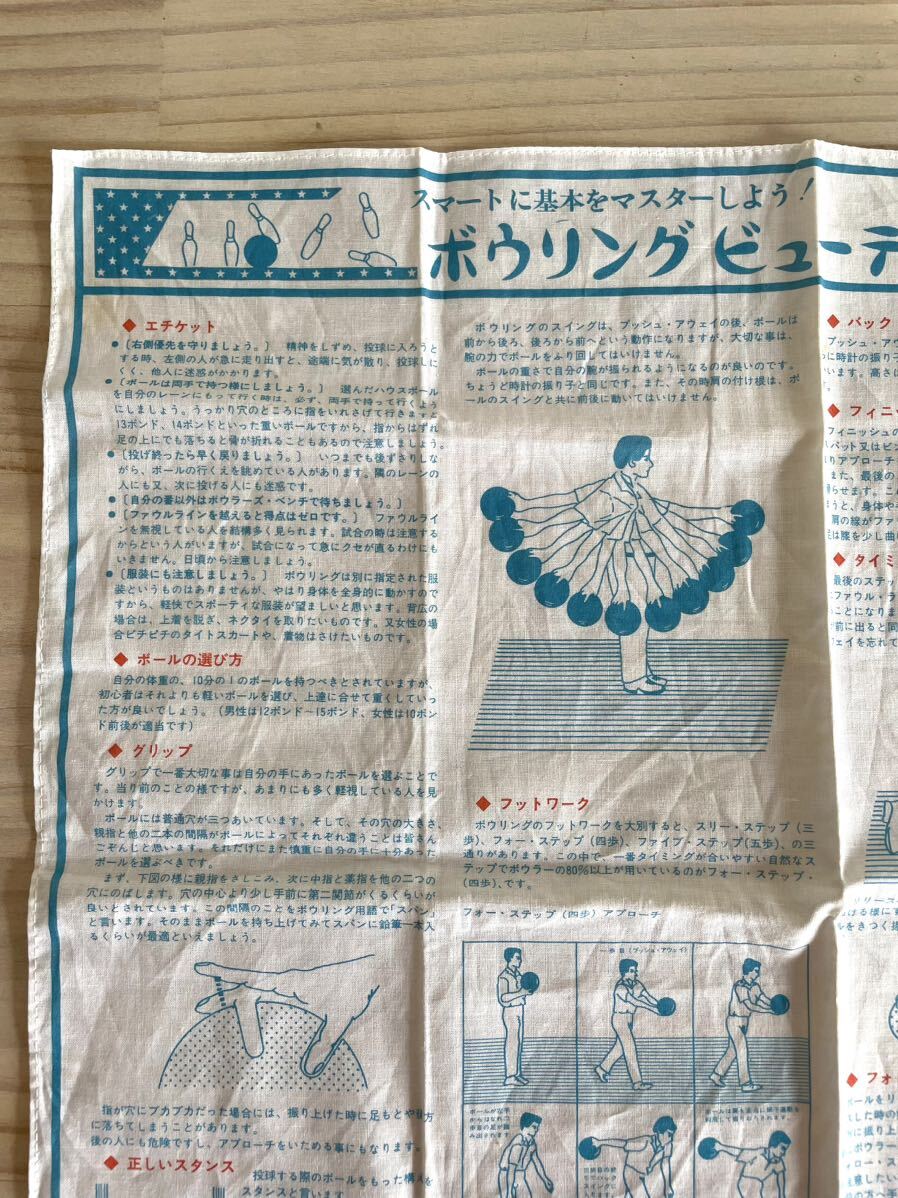 スマートに基本をマスターしよう!
ボウリング ビューテ
◆ エチケット
●〔右側優先を守りましょう。〕 精神をしずめ、投球に入ろうと
する時、左側の人が急に走り出すと、途端に気が散り、投球しに
くく、他人に迷惑がかかります。
●〔ボールは両手で持つ様にしましょう。〕 選んだハウスボール
を自分のレーンにもって行く時は、必ず、両手で持って行くよう
にしましょう。うっかり穴のところに指をいれさげて行きますと
13ポンド、14ポンドといった重いボールですから、指からはずれ
足の上にでも落ちると骨が折れることもあるので注意しましょう。
●〔投げ終ったら早く戻りましょう。〕 いつまでも後ずさりしな
がら、ボールの行くえを眺めている人があります。隣のレーンの
人にも又、次に投げる人にも迷惑です。
●〔自分の番以外はボウラーズ・ベンチで待ちましょう。〕
●〔ファウルラインを越えると得点はゼロです。〕 ファウルライ
ンを無視している人を結構多く見られます。試合の時は注意する
からという人がいますが、試合になって急にクセが直るわけにも
いきません。日頃から注意しましょう。
●〔服装にも注意しましょう。〕 ボウリングは別に指定された服
装というものはありませんが、やはり身体を全身的に動かすので
すから、軽快でスポーティな服装が望ましいと思います。背広の
場合は、上着を脱ぎ、ネクタイを取りたいものです。又女性の場
合ピチピチのタイトスカートや、着物はさけたいものです。
◆ ボールの選び方
自分の体重の、10分の1のボールを持つべきとされていますが、
初心者はそれよりも軽いボールを選び、上達に合せて重くしていっ
た方が良いでしょう。(男性は12ポンド〜15ポンド、女性は10ポン
ド前後が適当です)
◆ グリップ
グリップで一番大切な事は自分の手にあったボールを選ぶことで
す。当り前のことの様ですが、あまりにも多く軽視している人を見
かけます。
ボールには普通穴が三つあいています。そして、その穴の大きさ、
親指と他の二本の間隔がボールによってそれぞれ違うことは皆さん
ごぞんじと思います。それだけにまた慎重に自分の手に十分あった
ボールを選ぶべきです。
まず、下図の様に親指をさしこみ、次に中指と薬指を他の二つの
穴にのばします。穴の中心より少し手前に第二関節がくるくらいが
良いとされています。この間隔のことをボウリング用語で「スパン」
と言います。そのままボールを持ち上げてみてスパンに鉛筆一本入
るくらいが最適といえましょう。
指が穴にブカブカだった場合には、振り上げた時に足もとや後方
に落ちてしまうことがあります。
後の人にも危険ですし、アプローチをいためる事にもなります。
◆ 正しいスタンス
投球する際のボールをもった構えを
スタンスと言います
ボウリングのスイングは、プッシュ・アウェイの後、ボールは
前から後ろ、後ろから前へという動作になりますが、大切な事は、
腕の力でボールをふり回してはいけません。
ボールの重さで自分の腕が振られるようになるのが良いのです。
ちょうど時計の振り子と同じです。また、その時肩の付け根は、ボ
ールのスイングと共に前後に動いてはいけません。
◆ フットワーク
ボウリングのフットワークを大別すると、スリー・ステップ(三
歩)、フォー・ステップ(四歩)、ファイブ・ステップ(五歩)、の三
通りがあります。この中で、一番タイミングが合いやすい自然なス
テップでボウラーの80%以上が用いているのがフォー・ステップ・
(四歩)、です。
フォー・ステップ(四歩)アプローチ
一歩目(プッシュ・アウェイ)
◆ バック
プッシュ・アウ
に時計の振り子
います。高さは
◆ フィニッ
フィニッシュの
りアプローチ
また、最後の
◆ タイミ
最後のステッ
ファウル・ラ
ことになりま
前に出ると同
ェイを忘れて
◆ フォ
ボールをリ